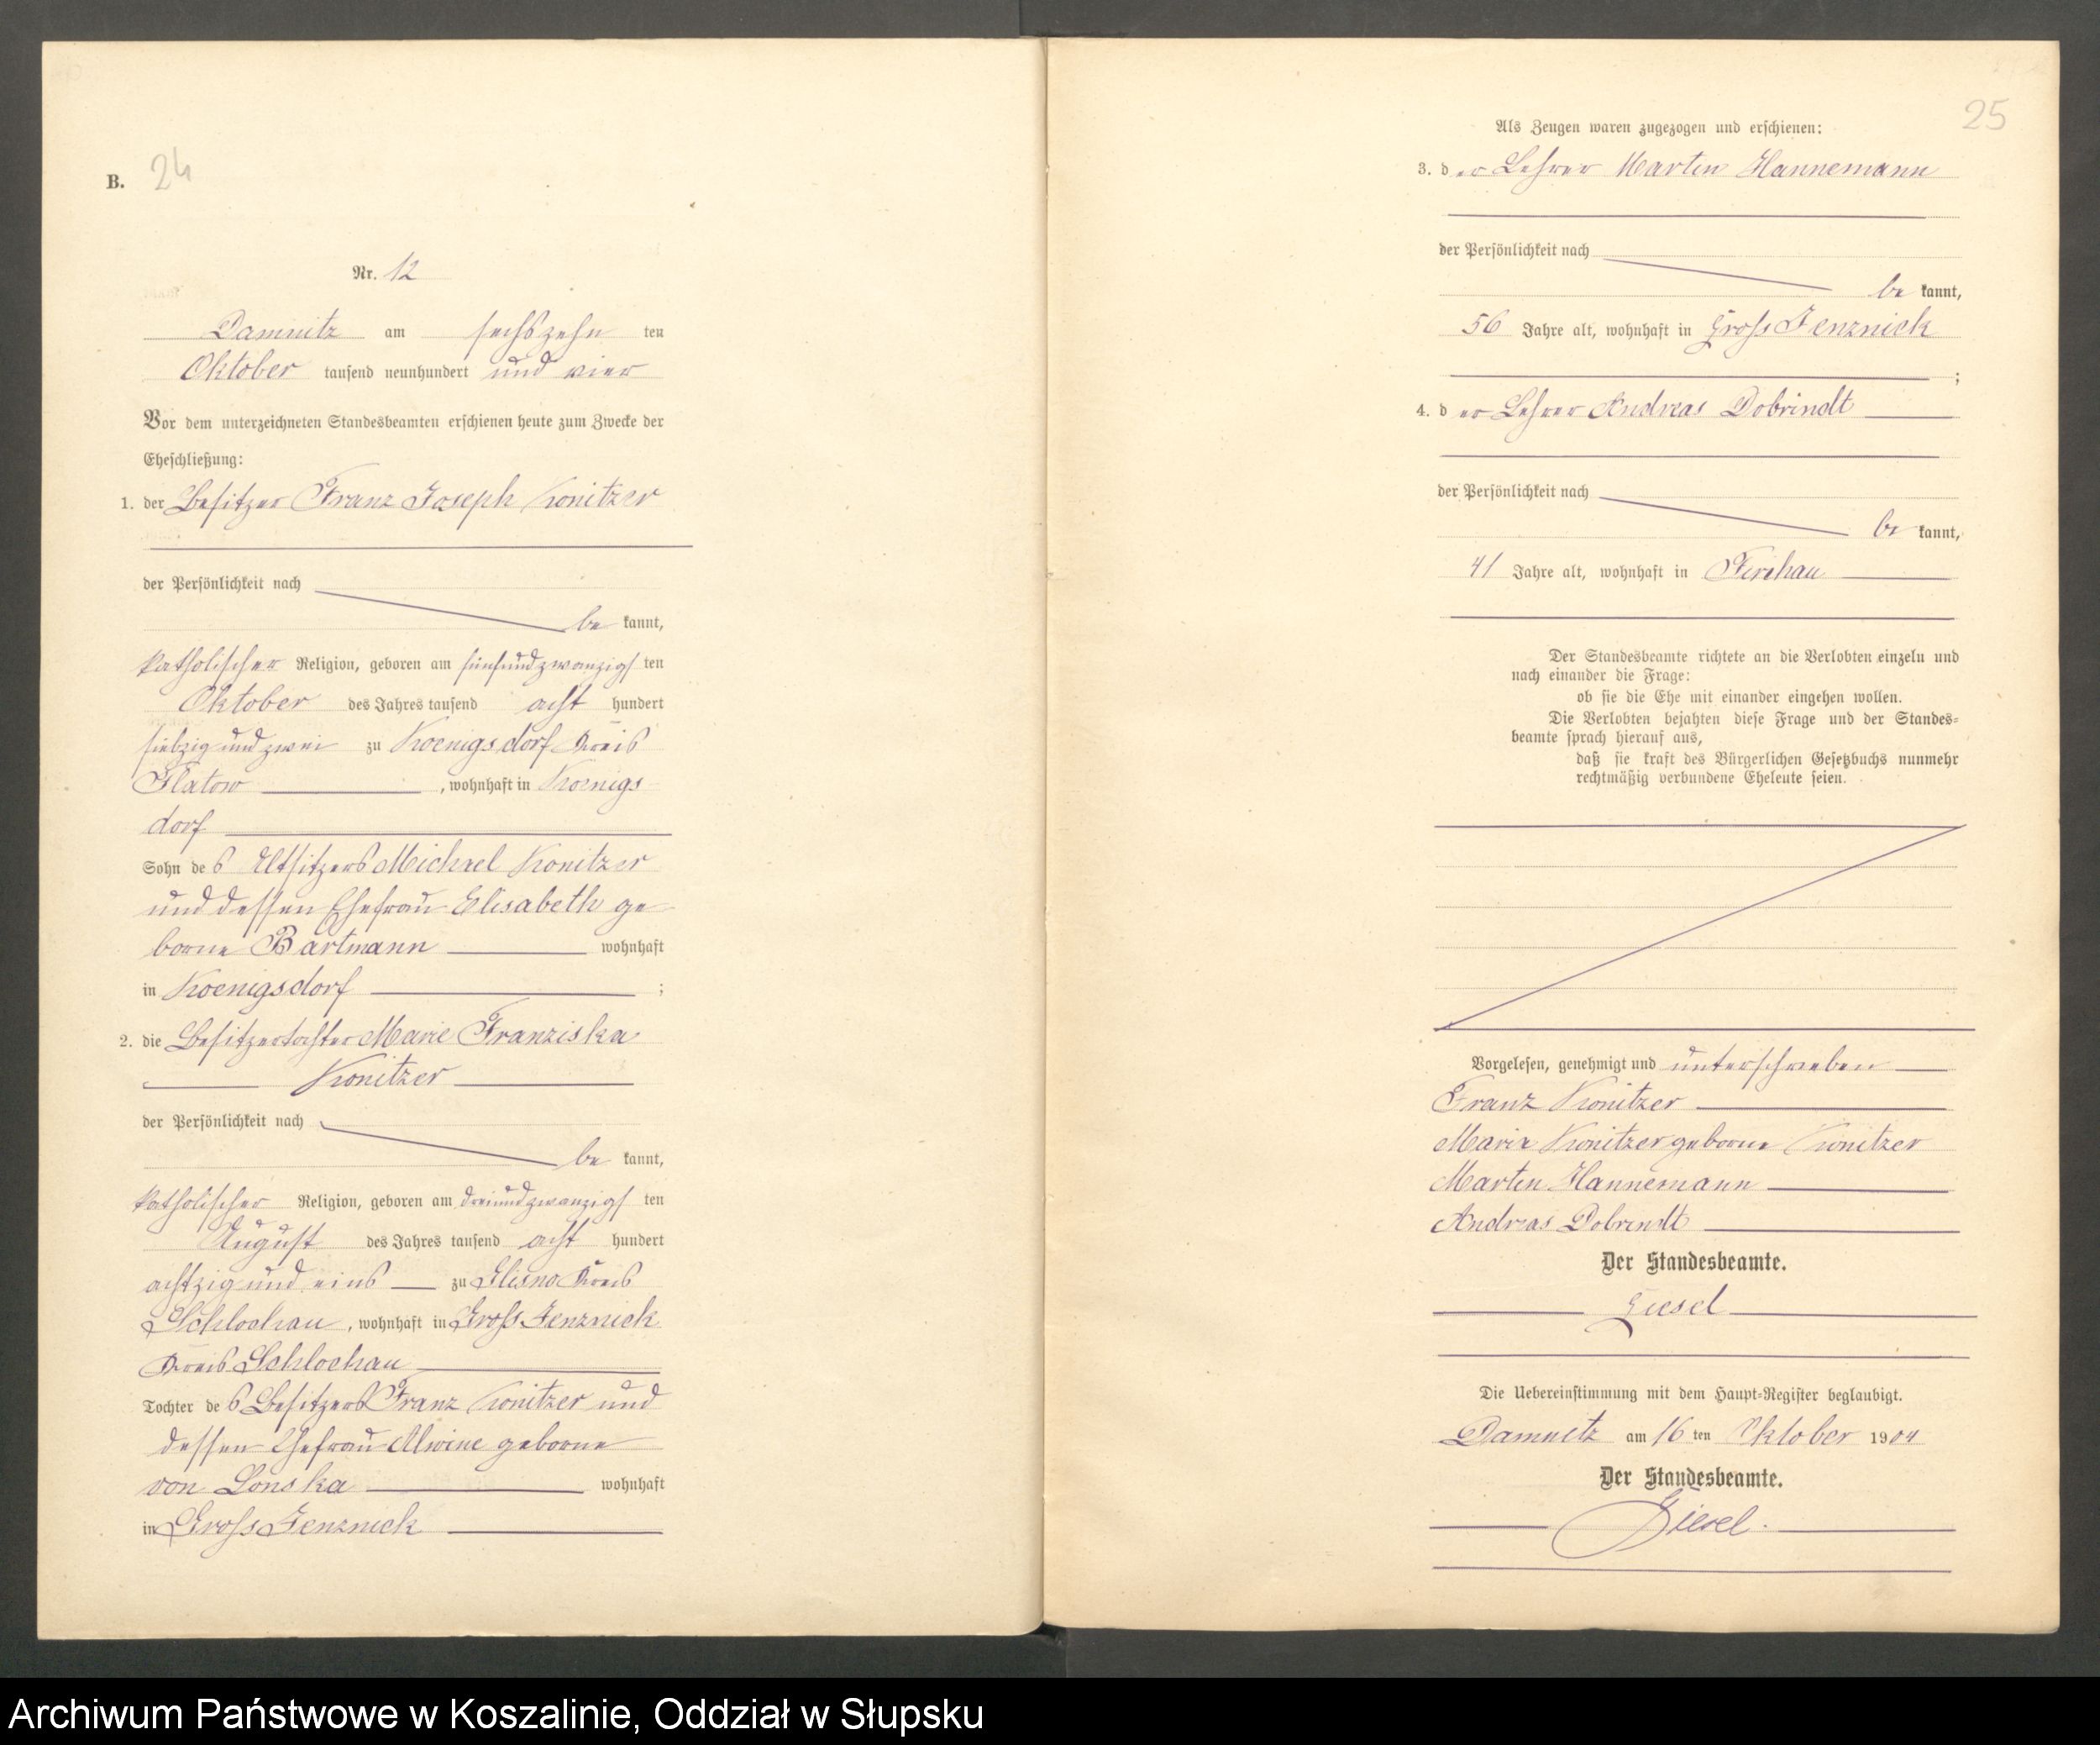 B. 24
Nr. 12
Damnitz am sechszehn ten
Oktober tausend neunhundert und vier
Vor dem unterzeichneten Standesbeamten erschienen heute zum Zwecke der
Eheschließung:
1. der Besitzer Franz Joseph Konitzer
der Persönlichkeit nach
be kannt,
katholischer Religion, geboren am fünfundzwanzigs ten
Oktober des Jahres tausend acht hundert
siebzig und zwei zu Koenigsdorf Kreis
Flatow , wohnhaft in Koenigs
dorf
Sohn des Altsitzers Michael Konitzer
und dessen Ehefrau Elisabeth ge
borne Bartmann wohnhaft
in Koenigsdorf ;
2. die Besitzertochter Marie Franziska
Konitzer
der Persönlichkeit nach
be kannt,
katholischer Religion, geboren am dreiundzwanzigs ten
August des Jahres tausend acht hundert
achtzig und eins zu Elisno Kreis
Schlochau , wohnhaft in Gross Jenznick
Kreis Schlochau
Tochter des Besitzers Franz Konitzer und
dessen Ehefrau Alwine geborne
von Lonska wohnhaft
in Gross Jenznick
25
Als Zeugen waren zugezogen und erschienen:
3. der Lehrer Martin Hannemann
der Persönlichkeit nach
be kannt,
56 Jahre alt, wohnhaft in Gross Jenznick
;
4. der Lehrer Andreas Dobrindt
der Persönlichkeit nach
be kannt,
41 Jahre alt, wohnhaft in Firchau
Der Standesbeamte richtete an die Verlobten einzeln und
nach einander die Frage:
ob sie die Ehe mit einander eingehen wollen.
Die Verlobten bejahten diese Frage und der Standes-
beamte sprach hierauf aus,
daß sie kraft des Bürgerlichen Gesetzbuchs nunmehr
rechtmäßig verbundene Eheleute seien.
Vorgelesen, genehmigt und unterschrieben
Franz Konitzer
Marie Konitzer geborne Konitzer
Martin Hannemann
Andreas Dobrindt
Der Standesbeamte.
Giesel
Die Uebereinstimmung mit dem Haupt-Register beglaubigt.
Damnitz am 16 ten Oktober 1904
Der Standesbeamte.
Giesel.
Archiwum Państwowe w Koszalinie, Oddział w Słupsku